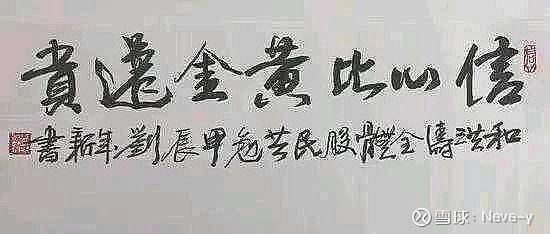 信心比黄金還貴
和洪濤全體股民共勉甲辰劉年新書
雪球:Neve-y